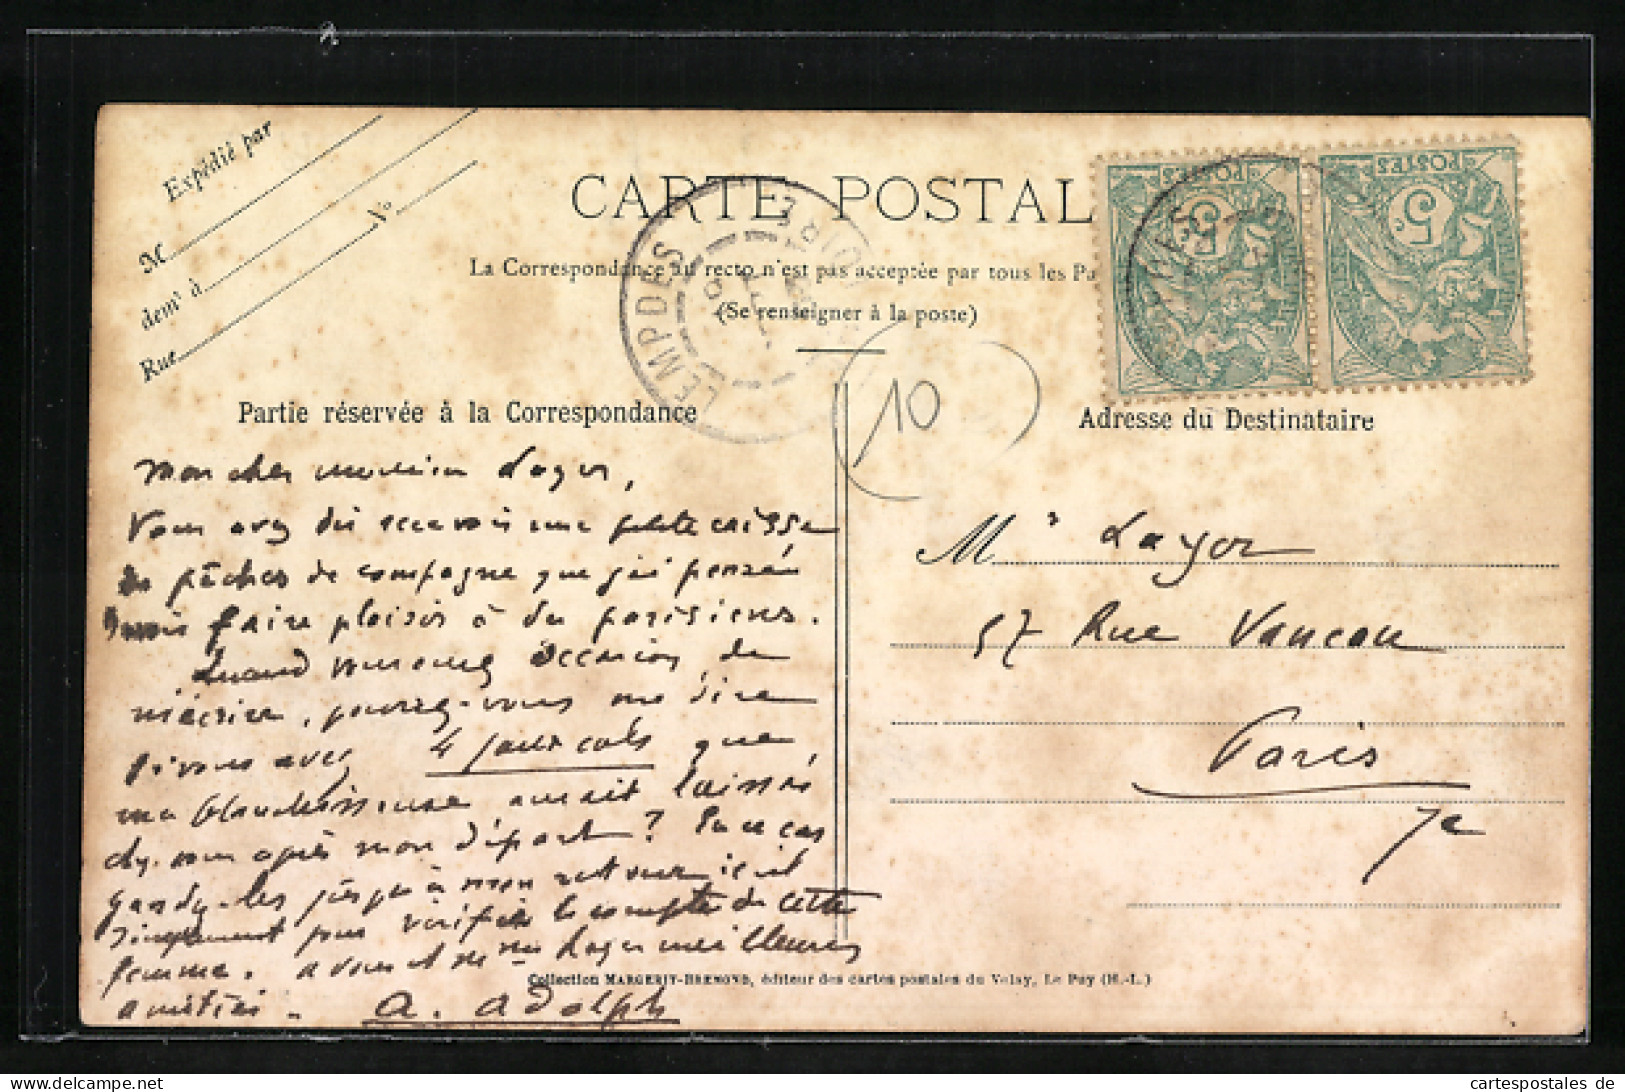 Expédié par
M
demt à
No
Rue
CARTE POSTAL
La Correspondance au recto n'est pas acceptée par tous les Pa
(Se renseigner à la poste)
LEMPDES
LOIRE
POSTES
5
POSTES
5
10
Partie réservée à la Correspondance
Mon cher monsieur Layer,
Vous avez dû recevoir une petite caisse
de pêches de campagne que j'ai pensé
faire plaisir à des parisiens.
Quand vous aurez occasion de
m'écrire, pourrez-vous me dire
si vous avez 4 faux cols que
ma blanchisseuse aurait laissés
chez vous après mon départ? En ce cas
gardez-les jusqu'à mon retour ici
simplement pour vérifier le compte de cette
femme. A vous et Mme Layer meilleures
amitiés. A. Adolph
Adresse du Destinataire
Mr Layer
57 Rue Vaneau
Paris
7e
Collection MARGERIT-BREMOND, éditeur des cartes postales du Velay, Le Puy (H.-L.)
www.ansichtskartenversand.com
cartespostales de